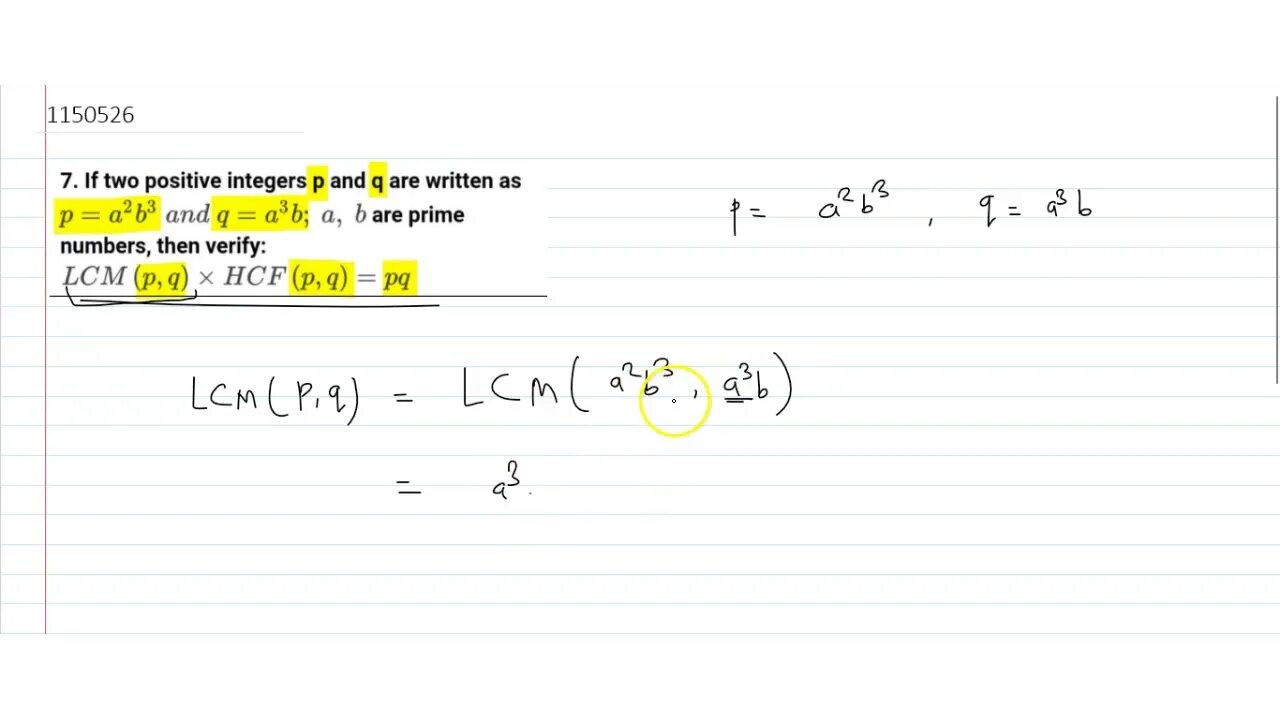 1150526
7. If two positive integers p and q are written as
p = a²b³ and q = a³b; a, b are prime
numbers, then verify:
LCM (p, q) × HCF (p, q) = pq
p = a²b³ , q = a³b
LCM(P,q) = LCM(a²b³, a³b)
= a³.